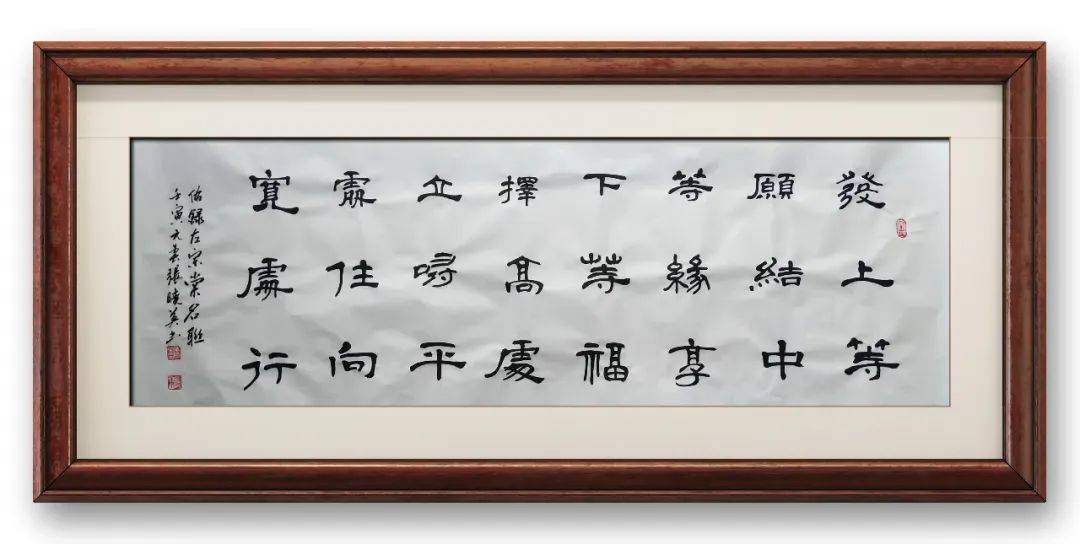 發上等
願結中
等緣享
下等福
擇高處
立噚平
處住向
寬處行
錄左宗棠名聯
壬寅張曉英书